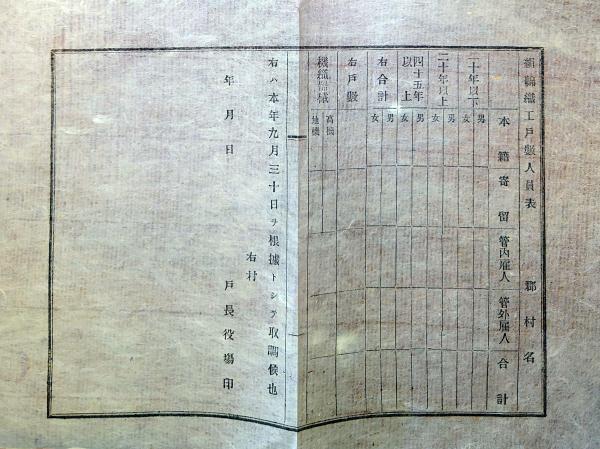 絹綿織工戸数人員表 郡村名
本籍 寄留 管内雇人 管外雇人 合計
二十年以下 男 女
二十年以上 男 女
四十五年以上 男 女
右合計 男 女
右戸数
機織器械 高機 地機
右ハ本年九月三十日ヲ根據トシテ取調候也
右村
年月日 戸長役場印